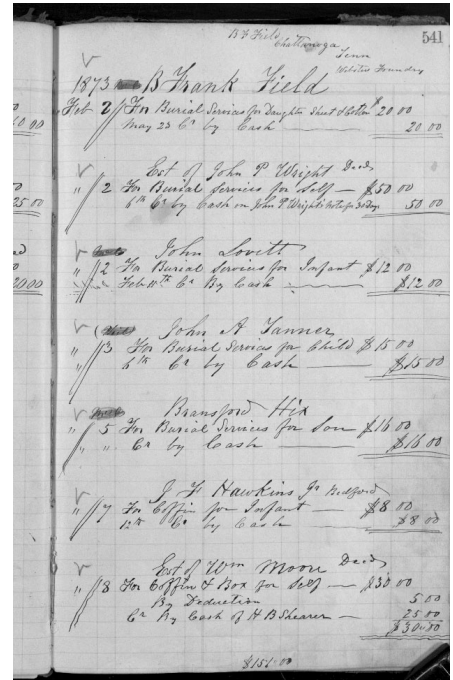 541
B F Field
Chattanooga
Tenn
Webster Foundry
1873 B Frank Field
Feb 2 For Burial Services for Daughter Sheet & Cotton $20 00
May 23 Cr by Cash 20.00
Est of John P Wright Decd
" 2 For Burial Services for Self — $50 00
6th Cr by Cash on John P Wright's Note for 30 days 50 00
John Lovitt
" 2 For Burial Services for Infant $12 00
Feb 11th Cr By Cash $12 00
John A Tanner
" 3 For Burial Services for Child $15 00
6th Cr by Cash $15 00
Bransford Hix
" 5 For Burial Services for Son $16 00
" " Cr by Cash $16 00
J F Hawkins Jr Bedford
" 7 For Coffin for Infant — $8 00
12th Cr by Cash $8 00
Est of Wm Moore Decd
" 8 For Coffin & Box for Self — $30 00
By Deduction 5 00
Cr By Cash of H B Shearer — 25 00
$30.00
$151.00